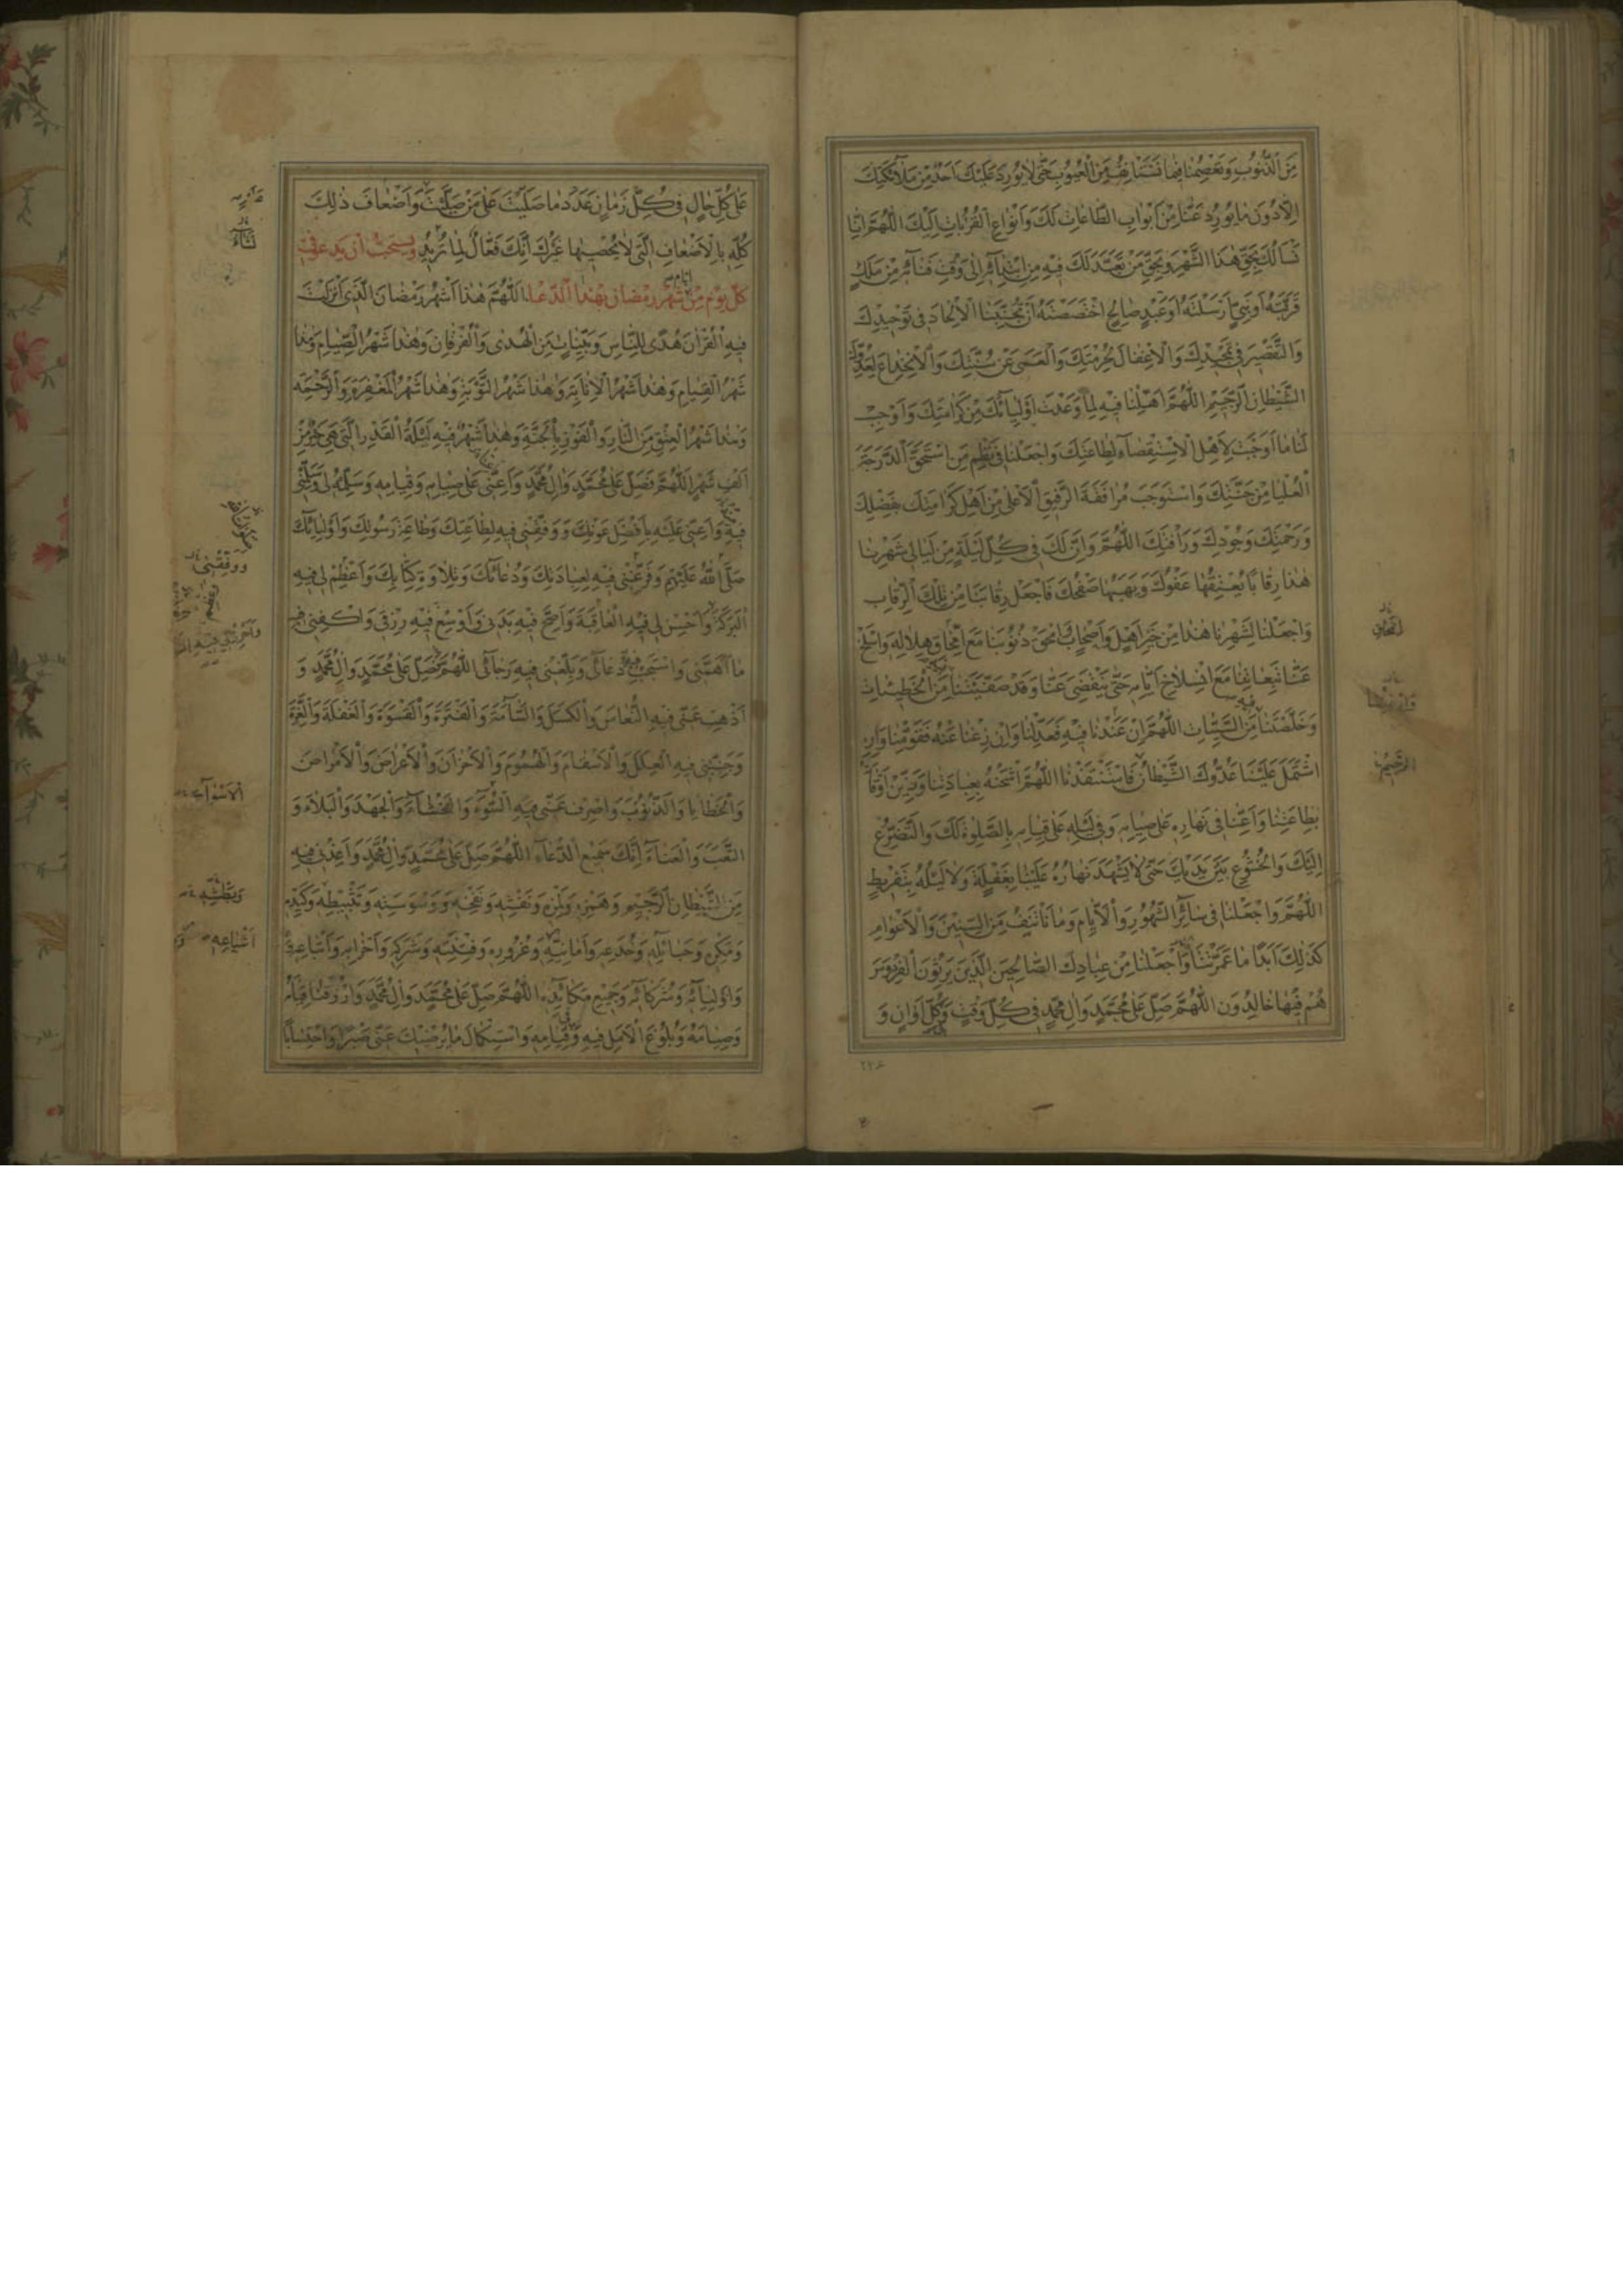 مِنَ الذُّنُوبِ وَتَعْصِمُنَا فِيمَا نَسْتَأْنِفُ مِنَ الْعُيُوبِ حَتَّى لَا يُورِدَ عَلَيْكَ أَحَدٌ مِنْ مَلَائِكَتِكَ
إِلَّا دُونَ مَا نُورِدُ عَنَّا مِنْ أَبْوَابِ الطَّاعَاتِ لَكَ وَأَنْوَاعِ الْقُرُبَاتِ إِلَيْكَ اللَّهُمَّ إِنَّا
نَسْأَلُكَ بِحَقِّ هَذَا الشَّهْرِ وَبِحَقِّ مَنْ تَعَبَّدَ لَكَ فِيهِ مِنِ ابْتِدَائِهِ إِلَى وَقْتِ فَنَائِهِ مِنْ مَلَكٍ
قَرَّبْتَهُ أَوْ نَبِيٍّ أَرْسَلْتَهُ أَوْ عَبْدٍ صَالِحٍ اخْتَصَصْتَهُ أَنْ تُجَنِّبَنَا الْإِلْحَادَ فِي تَوْحِيدِكَ
وَالتَّقْصِيرَ فِي تَمْجِيدِكَ وَالْإِغْفَالَ لِحُرْمَتِكَ وَالْعَمَى عَنْ سُنَّتِكَ وَالْانْخِدَاعَ لِعَدُوِّكَ
الشَّيْطَانِ الرَّجِيمِ اللَّهُمَّ أَهِّلْنَا فِيهِ لِمَا وَعَدْتَ أَوْلِيَائَكَ مِنْ كَرَامَتِكَ وَأَوْجِبْ
لَنَا مَا أَوْجَبْتَ لِأَهْلِ الْاسْتِقْصَاءِ لِطَاعَتِكَ وَاجْعَلْنَا فِي نَظْمِ مَنِ اسْتَحَقَّ الدَّرَجَةَ
الْعُلْيَا مِنْ جَنَّتِكَ وَاسْتَوْجَبَ مُرَافَقَةَ الرَّفِيقِ الْأَعْلَى مِنْ أَهْلِ كَرَامَتِكَ بِفَضْلِكَ
وَرَحْمَتِكَ وَجُودِكَ وَرَأْفَتِكَ اللَّهُمَّ وَإِنَّ لَكَ فِي كُلِّ لَيْلَةٍ مِنْ لَيَالِي شَهْرِنَا
هَذَا رِقَابًا يُعْتِقُهَا عَفْوُكَ وَيَهَبُهَا صَفْحُكَ فَاجْعَلْ رِقَابَنَا مِنْ تِلْكَ الرِّقَابِ
وَاجْعَلْنَا لِشَهْرِنَا هَذَا مِنْ خَيْرِ أَهْلٍ وَأَصْحَابٍ وَامْحَقْ ذُنُوبَنَا مَعَ امِّحَاقِ هِلَالِهِ وَاسْلَخْ
عَنَّا تَبِعَاتِنَا مَعَ انْسِلَاخِ أَيَّامِهِ حَتَّى يَنْقَضِيَ عَنَّا وَقَدْ صَفَّيْتَنَا مِنَ الْخَطِيئَاتِ
وَخَلَّصْتَنَا مِنَ السَّيِّئَاتِ اللَّهُمَّ إِنْ عَنَدْنَا فِيهِ فَعَدِّلْنَا وَإِنْ زِغْنَا عَنْهُ فَقَوِّمْنَا وَإِنِ
اشْتَمَلَ عَلَيْنَا عَدُوُّكَ الشَّيْطَانُ فَاسْتَنْقِذْنَا اللَّهُمَّ اشْحَنْهُ بِعِبَادَتِنَا وَزَيِّنْ أَوْقَاتَهُ
بِطَاعَتِنَا وَأَعِنَّا فِي نَهَارِهِ عَلَى صِيَامِهِ وَفِي لَيْلِهِ عَلَى قِيَامِهِ بِالصَّلَوةِ لَكَ وَالتَّضَرُّعِ
إِلَيْكَ وَالْخُشُوعِ بَيْنَ يَدَيْكَ حَتَّى لَا يَشْهَدَ نَهَارُهُ عَلَيْنَا بِغَفْلَةٍ وَلَا لَيْلُهُ بِتَفْرِيطٍ
اللَّهُمَّ وَاجْعَلْنَا فِي سَائِرِ الشُّهُورِ وَالْأَيَّامِ وَمَا نَأْتَنِفُ مِنَ السِّنِينَ وَالْأَعْوَامِ
كَذَلِكَ أَبَدًا مَا عَمَّرْتَنَا وَاجْعَلْنَا مِنْ عِبَادِكَ الصَّالِحِينَ الَّذِينَ يَرِثُونَ الْفِرْدَوْسَ
هُمْ فِيهَا خَالِدُونَ اللَّهُمَّ صَلِّ عَلَى مُحَمَّدٍ وَآلِ مُحَمَّدٍ فِي كُلِّ وَقْتٍ وَكُلِّ أَوَانٍ وَ
٢٢٤
عَلَى كُلِّ حَالٍ فِي كُلِّ زَمَانٍ عَدَدَ مَا صَلَّيْتَ عَلَى مَنْ صَلَّيْتَ وَأَضْعَافَ ذَلِكَ
كُلِّهِ بِالْأَضْعَافِ الَّتِي لَا يُحْصِيهَا غَيْرُكَ إِنَّكَ فَعَّالٌ لِمَا تُرِيدُ وَيُسْتَحَبُّ أَنْ يَدْعُوَ فِي
كُلِّ يَوْمٍ مِنْ أيام شَهْرِ رَمَضَانَ بِهَذَا الدُّعَاءِ اللَّهُمَّ هَذَا شَهْرُ رَمَضَانَ الَّذِي أَنْزَلْتَ
فِيهِ الْقُرْآنَ هُدًى لِلنَّاسِ وَبَيِّنَاتٍ مِنَ الْهُدَى وَالْفُرْقَانِ وَهَذَا شَهْرُ الصِّيَامِ وَهَذَا
شَهْرُ الْقِيَامِ وَهَذَا شَهْرُ الْإِنَابَةِ وَهَذَا شَهْرُ التَّوْبَةِ وَهَذَا شَهْرُ الْمَغْفِرَةِ وَالرَّحْمَةِ
وَهَذَا شَهْرُ الْعِتْقِ مِنَ النَّارِ وَالْفَوْزِ بِالْجَنَّةِ وَهَذَا شَهْرٌ فِيهِ لَيْلَةُ الْقَدْرِ الَّتِي هِيَ خَيْرٌ مِنْ
أَلْفِ شَهْرٍ اللَّهُمَّ فَصَلِّ عَلَى مُحَمَّدٍ وَآلِ مُحَمَّدٍ وَأَعِنِّي عَلَى صِيَامِهِ وَقِيَامِهِ وَسَلِّمْهُ لِي وَسَلِّمْنِي
فِيهِ وَأَعِنِّي عَلَيْهِ بِأَفْضَلِ عَوْنِكَ وَوَفِّقْنِي فِيهِ لِطَاعَتِكَ وَطَاعَةِ رَسُولِكَ وَأَوْلِيَائِكَ
صَلَّى اللَّهُ عَلَيْهِمْ وَفَرِّغْنِي فِيهِ لِعِبَادَتِكَ وَدُعَائِكَ وَتِلَاوَةِ كِتَابِكَ وَأَعْظِمْ لِي فِيهِ
الْبَرَكَةَ وَأَحْسِنْ لِي فِيهِ الْعَاقِبَةَ وَأَصِحَّ فِيهِ بَدَنِي وَأَوْسِعْ فِيهِ رِزْقِي وَاكْفِنِي فِيهِ
مَا أَهَمَّنِي وَاسْتَجِبْ فِيهِ دُعَائِي وَبَلِّغْنِي فِيهِ رَجَائِي اللَّهُمَّ صَلِّ عَلَى مُحَمَّدٍ وَآلِ مُحَمَّدٍ وَ
أَذْهِبْ عَنِّي فِيهِ النُّعَاسَ وَالْكَسَلَ وَالسَّأْمَةَ وَالْفَتْرَةَ وَالْقَسْوَةَ وَالْغَفْلَةَ وَالْغِرَّةَ
وَجَنِّبْنِي فِيهِ الْعِلَلَ وَالْأَسْقَامَ وَالْهُمُومَ وَالْأَحْزَانَ وَالْأَعْرَاضَ وَالْأَمْرَاضَ
وَالْخَطَايَا وَالذُّنُوبَ وَاصْرِفْ عَنِّي فِيهِ السُّوءَ وَالْفَحْشَاءَ وَالْجَهْدَ وَالْبَلَاءَ وَ
التَّعَبَ وَالْعَنَاءَ إِنَّكَ سَمِيعُ الدُّعَاءِ اللَّهُمَّ صَلِّ عَلَى مُحَمَّدٍ وَآلِ مُحَمَّدٍ وَأَعِذْنِي فِيهِ
مِنَ الشَّيْطَانِ الرَّجِيمِ وَهَمْزِهِ وَلَمْزِهِ وَنَفْثِهِ وَنَفْخِهِ وَوَسْوَسَتِهِ وَتَثْبِيطِهِ وَكَيْدِهِ
وَمَكْرِهِ وَحَبَائِلِهِ وَخُدَعِهِ وَأَمَانِيِّهِ وَغُرُورِهِ وَفِتْنَتِهِ وَشَرَكِهِ وَأَحْزَابِهِ وَأَتْبَاعِهِ
وَأَوْلِيَائِهِ وَشُرَكَائِهِ وَجَمِيعِ مَكَائِدِهِ اللَّهُمَّ صَلِّ عَلَى مُحَمَّدٍ وَآلِ مُحَمَّدٍ وَارْزُقْنَا قِيَامَهُ
وَصِيَامَهُ وَبُلُوغَ الْأَمَلِ فِيهِ وَفِي قِيَامِهِ وَاسْتِكْمَالَ مَا يُرْضِيكَ عَنِّي صَبْرًا وَاحْتِسَابًا
وَوَفِّقْنِي
الْأَسْوَاءَ
وَبَطْشِهِ
أَشْيَاعِهِ